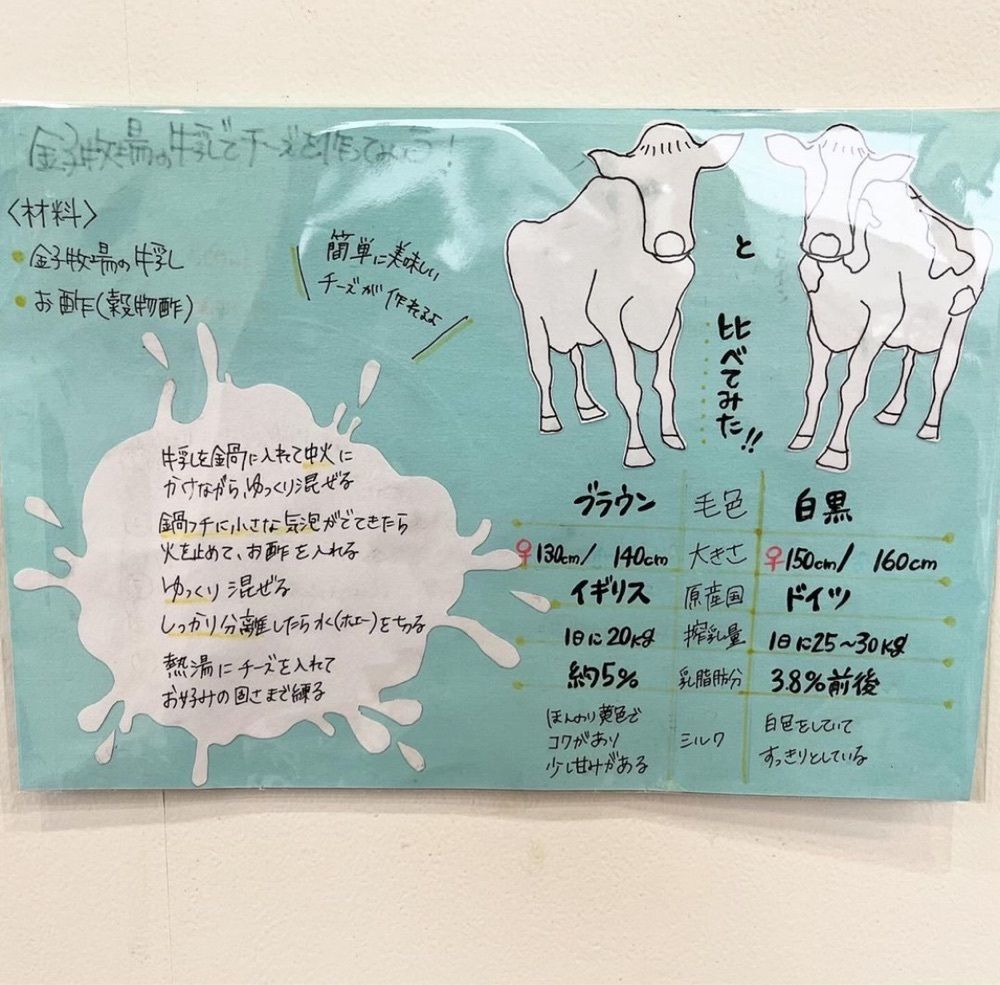 金子牧場の牛乳でチーズを作ってみよう!
〈材料〉
金子牧場の牛乳
お酢(穀物酢)
簡単に美味しい
チーズが作れるよ
牛乳を鍋に入れて中火に
かけながら、ゆっくり混ぜる
鍋フチに小さな気泡がでてきたら
火を止めて、お酢を入れる
ゆっくり混ぜる
しっかり分離したら水(ホエー)を切る
熱湯にチーズを入れて
お好みの固さまで練る
と
比べてみた!!
ブラウン 毛色 白黒
♀130cm/ 140cm 大きさ ♀150cm/ 160cm
イギリス 原産国 ドイツ
1日に20kg 搾乳量 1日に25~30kg
約5% 乳脂肪分 3.8%前後
ほんのり黄色で
コクがあり
少し甘みがある
ミルク
白色をしていて
すっきりとしている